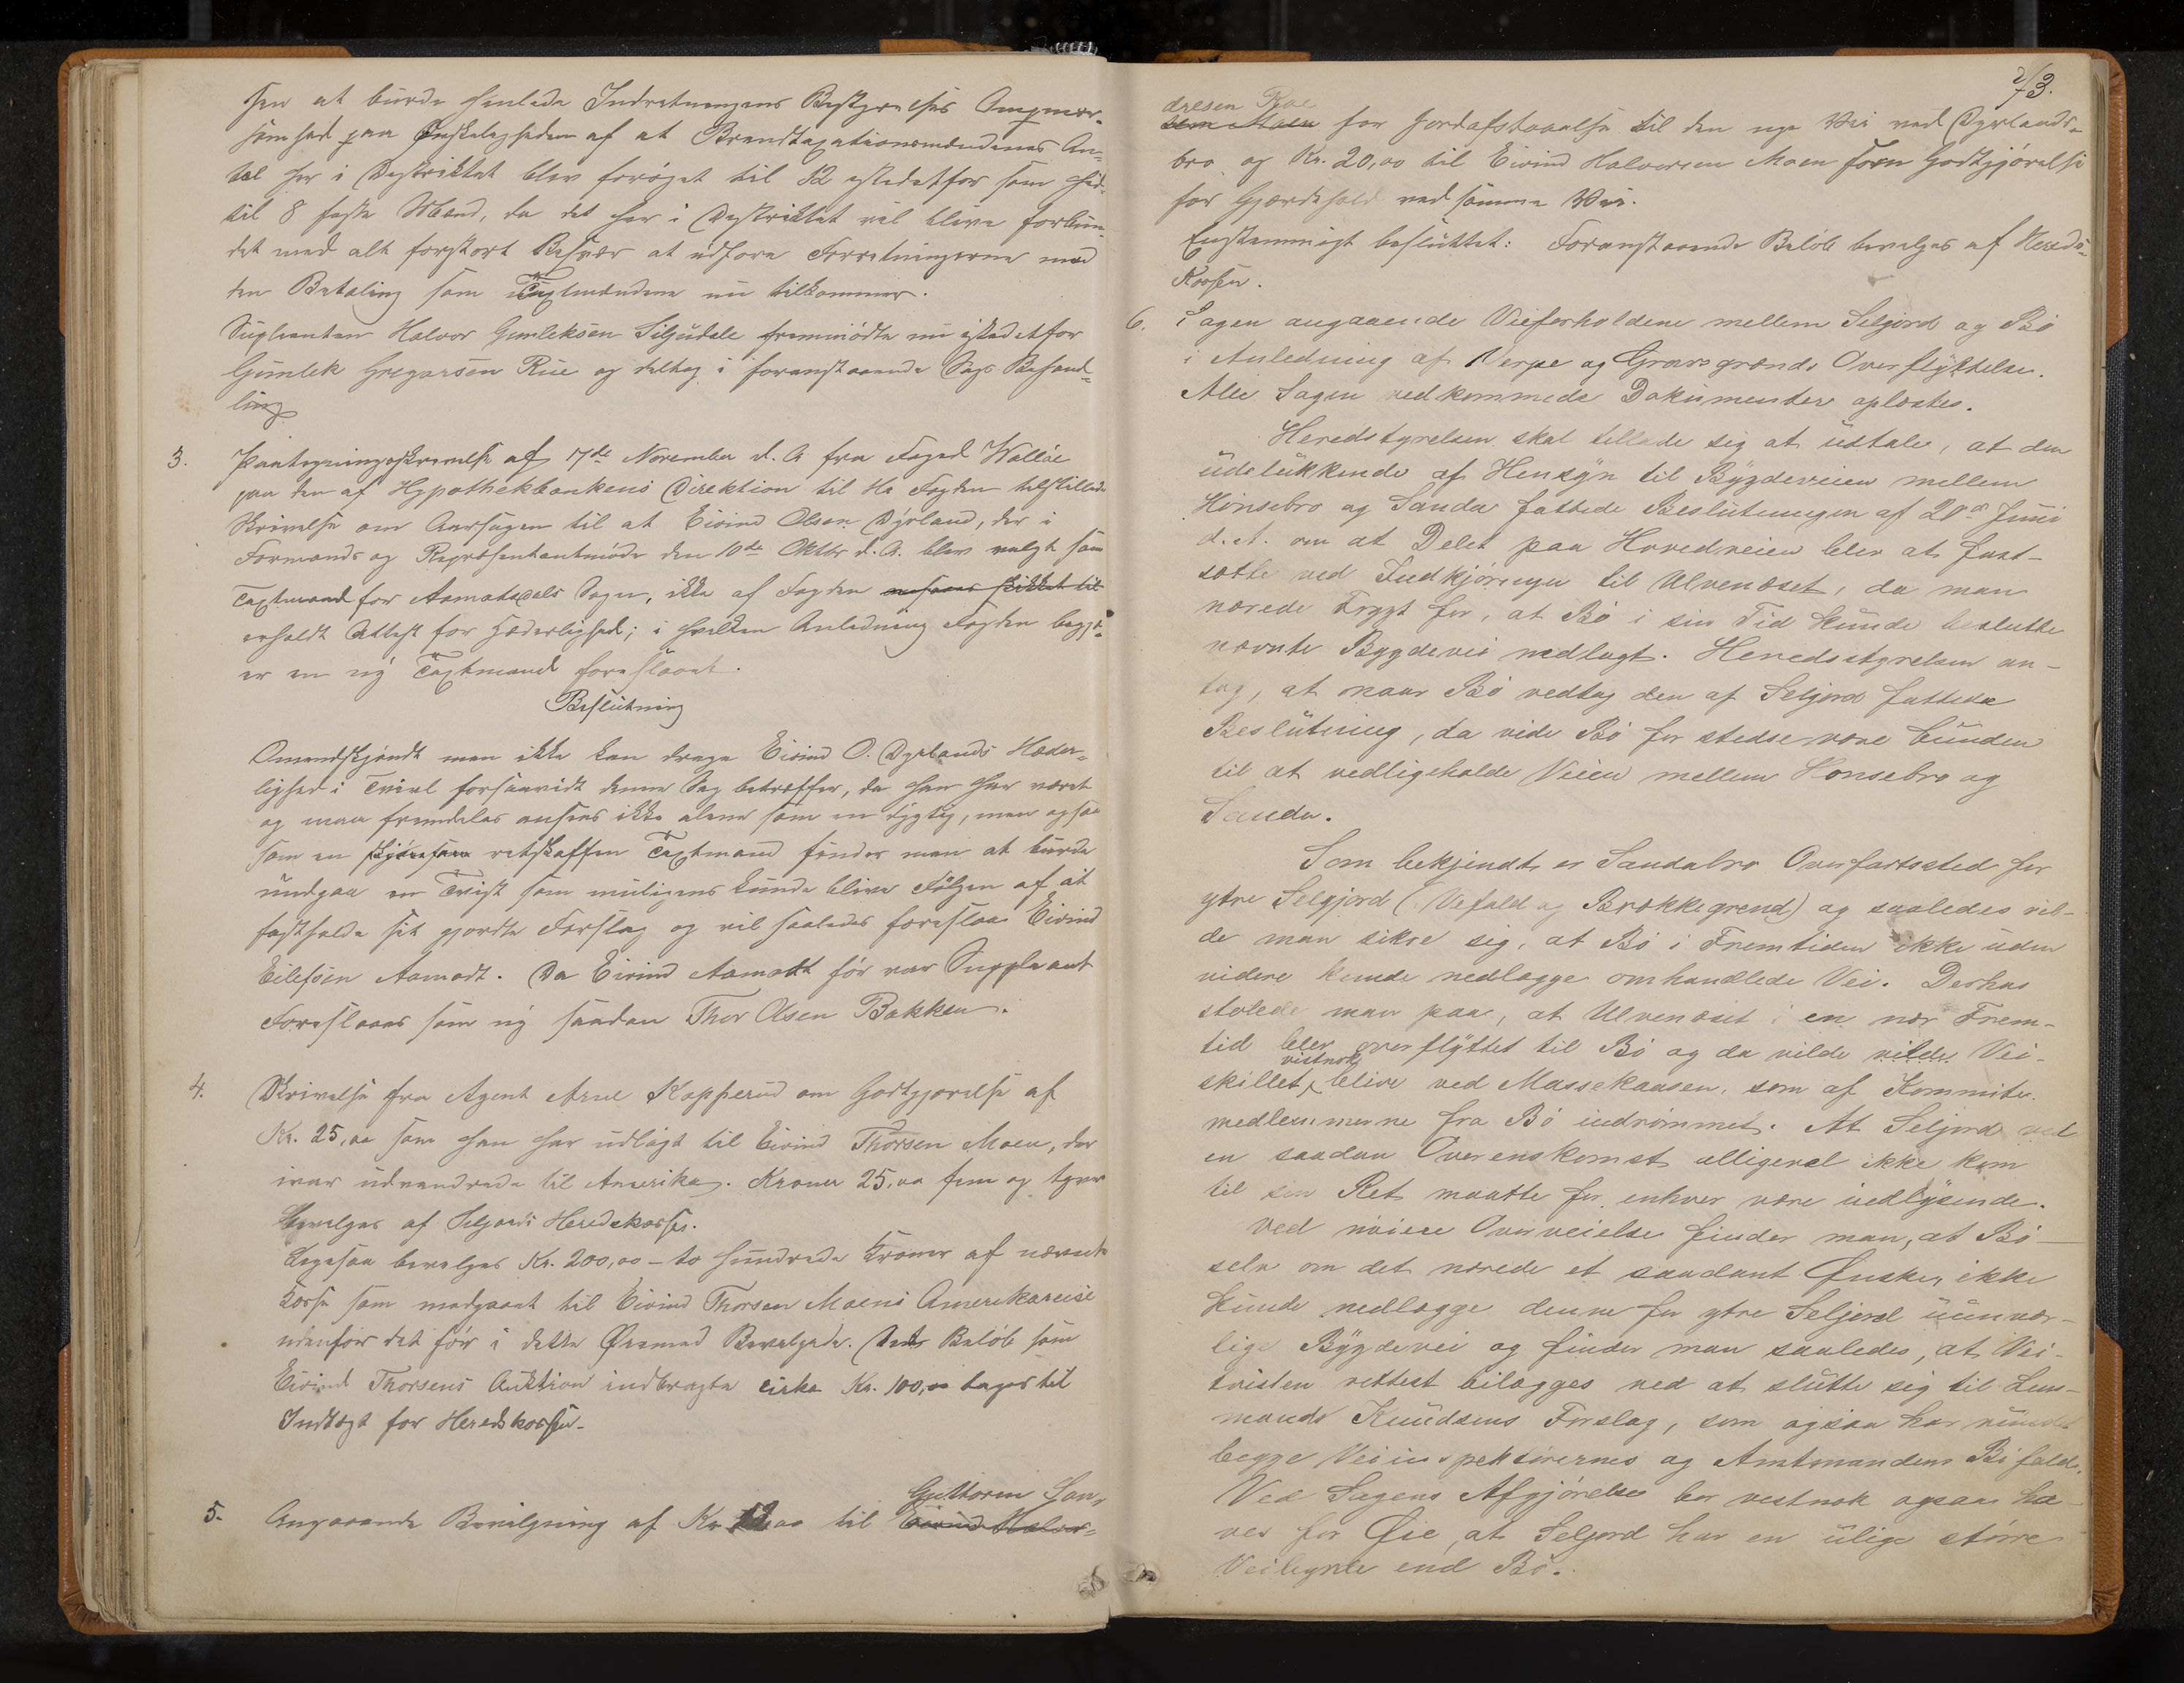 sen at burde henlede Indretningens Bestyrelses Opmærk-
somhed paa Ønskeligheden af at Brandtaxationsmændenes An-
tal her i Distriktet blev forøget til 12 istedetfor som hid-
til 8 faste Mænd, da det her i Distriktet vil blive forbun-
det med alt forstort Besvær at udføre Forretningerne med
den Betaling som Taxtmændene nu tilkommer.
Supleanten Halvor Gunleksen Siljudale fremmødte nu istedetfor
Gunlek Gregarsen Rue og deltog i foranstaaende Sags Behand-
ling
3. Paategningsskrivelse af 17de November d. A. fra Foged Walløe
paa den af Hypothekbankens Direktion til Hr Fogden tilstillede
Skrivelse om Aarsagen til at Eivind Olsen Dyrland, der i
Formands og Repræsentantmøde den 10de Oktbr d. A. blev valgt som
Taxtmand for Aamotsdals Sogn, ikke af Fogden
erholdt Attest for Hæderlighed; i hvilken Anledning Fogden begjæ-
er en ny Taxtmand foreslaaet.
Beslutning
Omendskjøndt man ikke kan drage Eivind O. Dyrlands Hæder-
lighed i Tvivl forsaavidt denne Sag betræffer, da han har været
og maa fremdeles ansees ikke alene som en dygtig, men ogsaa
som en retskaffen Taxtmand finder man at burde
undgaa en Tvist som muligens kunde blive Følgen af at
fastholde sit gjorte Forslag og vil saaledes foreslaa Eivind
Eilefsen Aamodt. Da Eivind Aamodt før var Suppleant
Foreslaaes som ny saadan Thor Olsen Bakken.
4. Skrivelse fra Agent Arne Kopperud om Godtgjørelse af
Kr. 25,00 som han har udlagt til Eivind Thorsen Moen, der
ivaar udvandrede til Amerika. Kroner 25,00 fem og tyve
bevilges af Seljords Heredskasse.
Ligesaa bevilges Kr. 200,00 – to hundrede Kroner af nævnte
Kasse som medgaaet til Eivind Thorsen Moens Amerikareise
udenfor det før i dette Øiemed Bevilgede. Det Beløb som
Eivind Thorsens Auktion indbragte cirka Kr. 100,00 tages til
Indtægt for Heredskassen.
Guttorm San-
5. Angaaende Bevilgning af Kr 12,00 til Eivind Halvor-
73.
dresen Roe
sen Moen for Jordafstaaelse til den nye Vei ved Dyrlands-
bro og Kr. 20,00 til Eivind Halvorsen Moen som Godtgjørelse
for Gjærdehold ved samme Vei.
Enstemmigt besluttet: Foranstaaende Beløb bevilges af Hereds-
Kassen.
6. Sagen angaaende Vieforholdene mellem Seljord og Bø
i Anledning af Verpe og Gravsgrænds Overflyttelse.
Alle Sagen vedkommede Dokumenter oplæstes.
Heredstyrelsen skal tillade sig at udtale, at den
udelukkende af Hensyn til Bygdeveien mellem
Hønsebro og Sanda fattede Beslutningen af 20de Juni
d. A. om at Delet paa Hovedveien blev at fast-
sætte ved Indkjøringen til Ulvenæset, da man
nærede Frygt for, at Bø i sin Tid kunde beslutte
nævnte Bygdevei nedlagt. Heredsstyrelsen an-
tog, at naar Bø vedtog den af Seljord fattede
Beslutning, da vide Bø for stedse være bunden
til at vedligeholde Veien mellem Hønsebro og
Sanda.
Som bekjendt er Sandabro Overfartssted for
ytre Selgjord (Vefald og Brækkegrend) og saaledes vil-
de man sikre sig, at Bø i Fremtiden ikke uden
videre kunde nedlægge omhandlede Vei. Derhos
stolede man paa, at Ulvenæset i en nær Frem-
tid blev overflyttet til Bø og da vilde vilde Vei-
vistnok
skillet blive ved Massekaasen, som af Kommite-
medlemmerne fra Bø indrømmet. At Seljord ved
en saadan Overenskomst alligevel ikke kom
til sin Ret maatte for enhver være indlysende.
Ved nøiere Overveielse finder man, at Bø
selv om det nærede et saadant Ønske, ikke
kunde nedlægge denne for ytre Seljord uunvær-
lige Bygdevei og finder man saaledes, at Vei-
tvisten rettest bilægges ved at slutte sig til Lens-
mands Knudsens Forslag, som ogsaa har vundet
begge Veiinspektørernes og Amtmandens Bifald.
Ved Sagens Afgjørelse bør vestnok ogsaa ha-
ves for Øie, at Seljord har en ulige større
Veibyrde end Bø.